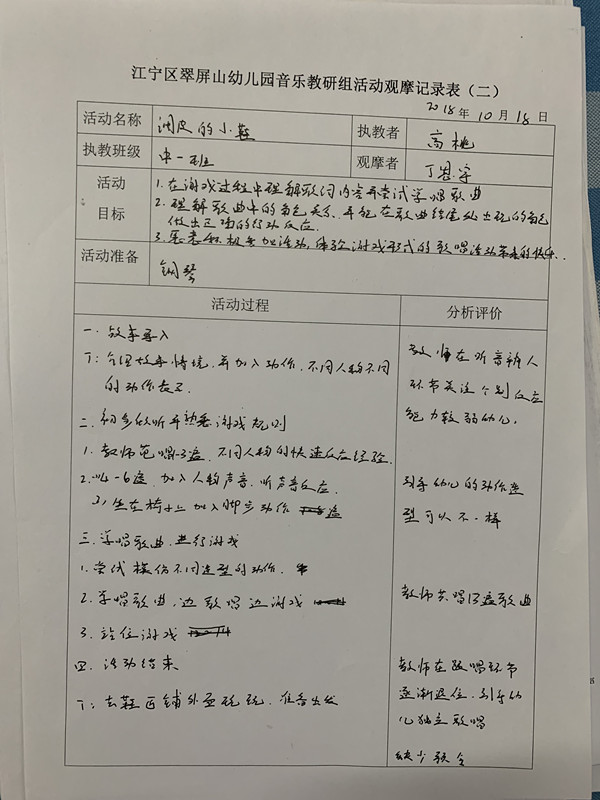 江宁区翠屏山幼儿园音乐教研组活动观摩记录表（二）
2018年10月18日
活动名称 调皮的小鞋 执教者 高桃
执教班级 中一班 观摩者 丁
活动目标
1.在游戏过程中理解歌词内容并尝试学唱歌曲
2.理解歌曲中的角色关系,并能在歌曲结尾处出现的角色
做出正确的行动反应.
3.愿意积极参加活动,体验游戏形式的歌唱活动带来的快乐.
活动准备 钢琴
活动过程 分析评价
一.故事导入
T:合理故事情境,并加入动作,不同人物不同
的动作表示
二.初步倾听并熟悉游戏规则
1.教师范唱1-3遍,不同人物的快速反应经验.
2.唱4-6遍,加入人物声音,听声音反应.
3,坐在椅子上加入脚步动作
三.学唱歌曲,进行游戏
1.尝试模仿不同造型的动作.
2.学唱歌曲,边歌唱边游戏
3.站位游戏
四.活动结束
T:去鞋匠铺外面玩玩,准备出发
教师在听音辨人
环节关注个别反应
能力较弱幼儿.
引导幼儿的动作造
型可以不一样
教师共唱13遍歌曲
教师在跟唱环节
逐渐退位,引导幼
儿独立歌唱
缺少